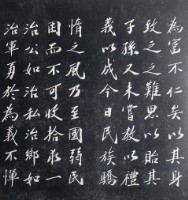 為富不仁矣以其身
致之之難思以貽其
子孫又未嘗教以禮
義以成今日民族驕
惰之風乃至國弱民
困而不可收拾求一
治公如治私治鄉如
治軍勇於為義不憚